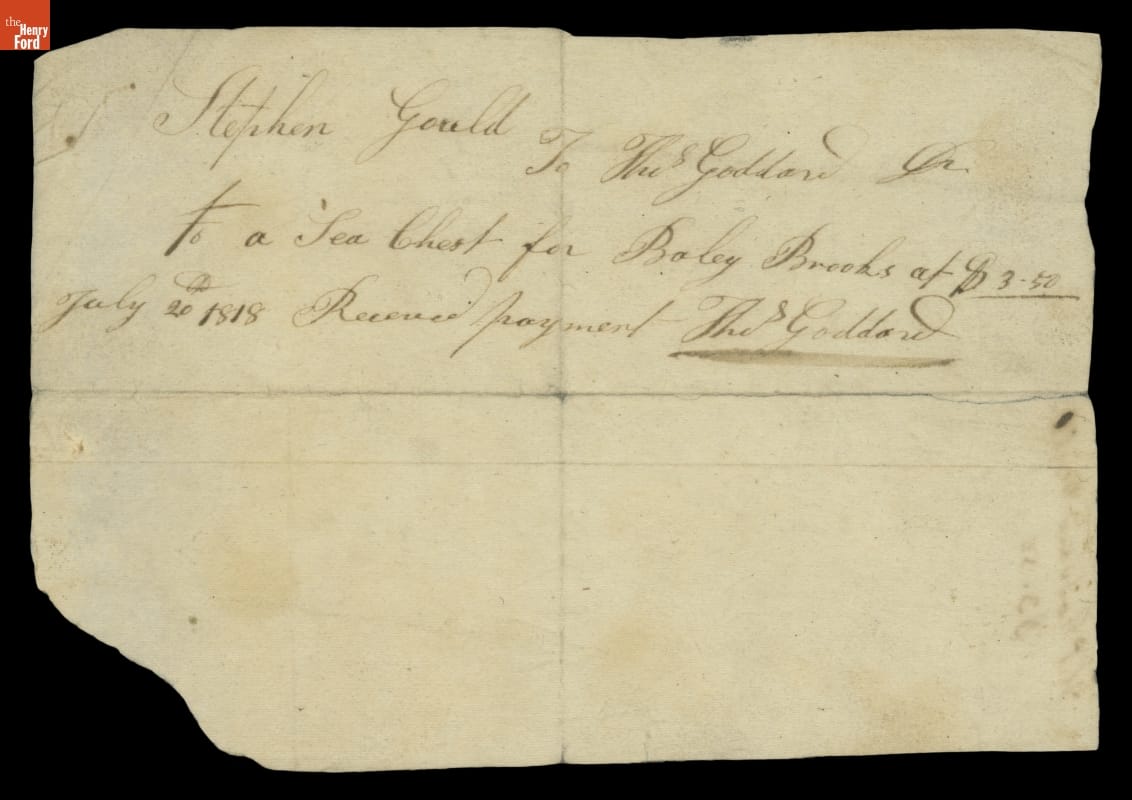 the Henry Ford
Stephen Gould
To Thos Goddard Dr
To a Sea Chest for Baley Brooks at $3-50
July 20th 1818 Receved payment Thos Goddard